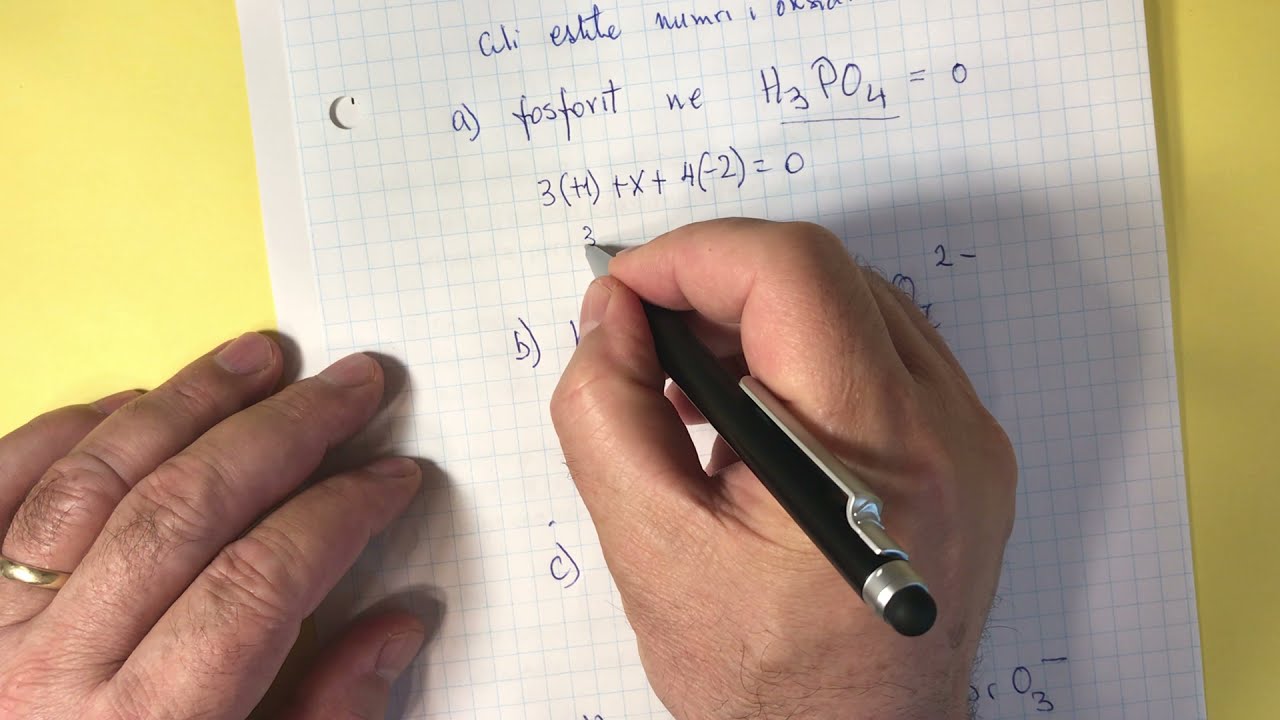 Cili eshte numri i oksid
a) fosforit ne H₃PO₄ = 0
3(+1) + x + 4(-2) = 0
3
b) 2-
c)
O₃⁻